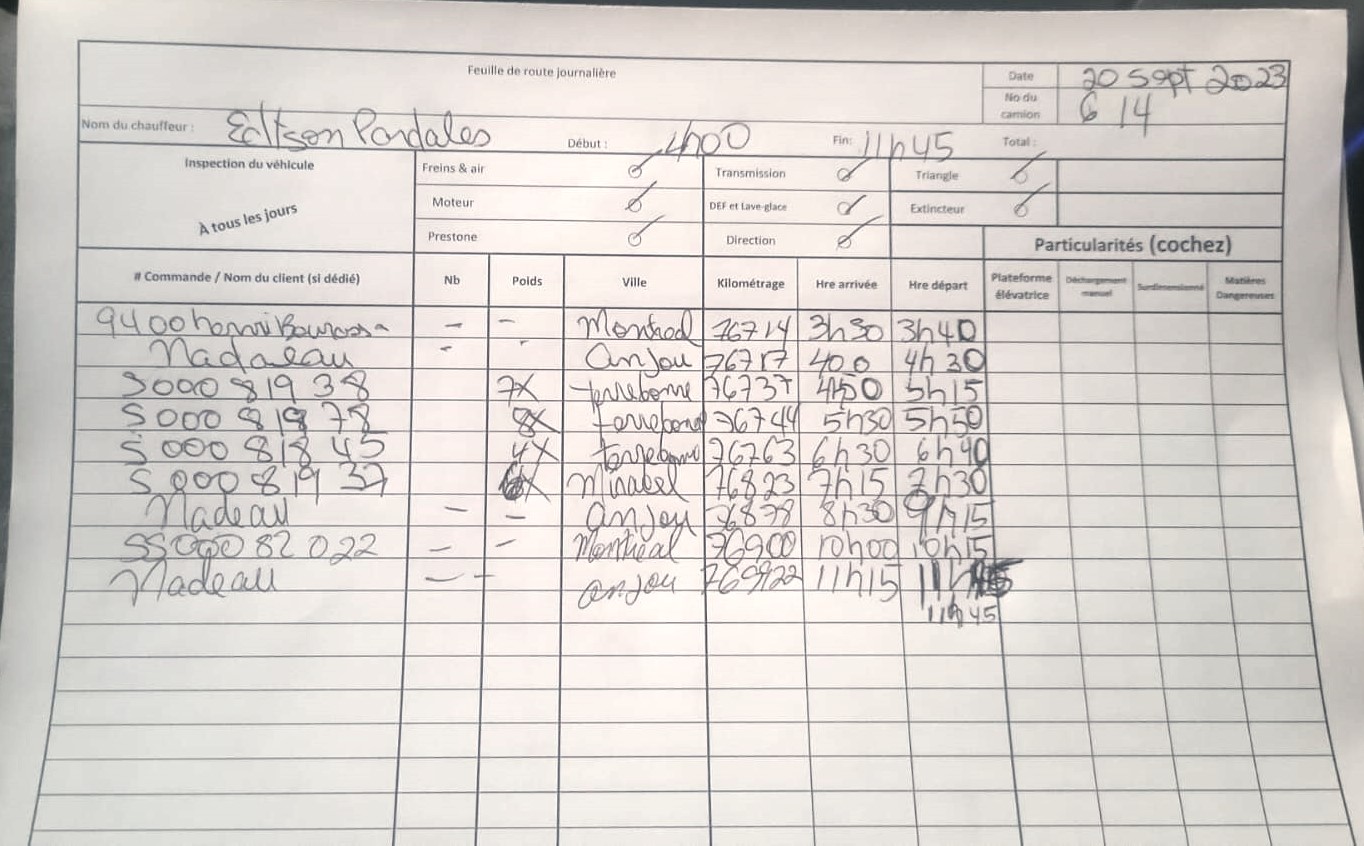 Feuille de route journalière
Date 20 Sept 2023
No du camion 614
Nom du chauffeur : Edtson Pardales Début : 4h00 Fin: 11h45 Total :
Inspection du véhicule
À tous les jours
Freins & air Transmission Triangle
Moteur DEF et Lave-glace Extincteur
Prestone Direction
Particularités (cochez)
# Commande / Nom du client (si dédié) Nb Poids Ville Kilométrage Hre arrivée Hre départ Plateforme élévatrice Déchargement manuel Surdimensionné Matières Dangereuses
9400 henri Bourassa - - Montreal 76714 3h30 3h40
Nadaeau - - Anjou 76717 400 4h30
S000 819 38 7X terrebonne 76737 4h50 5h15
S000 819 78 8X terrebonne 76744 5h30 5h50
S 000 818 45 4X terrebonne 76763 6h30 6h40
S 000 819 37 Mirabel 76823 7h15 7h30
Nadeau - - anjou 76878 8h30 9h15
SS000 82 022 - - Montréal 76900 10h00 10h15
Nadeau - - anjou 769922 11h15
11h45